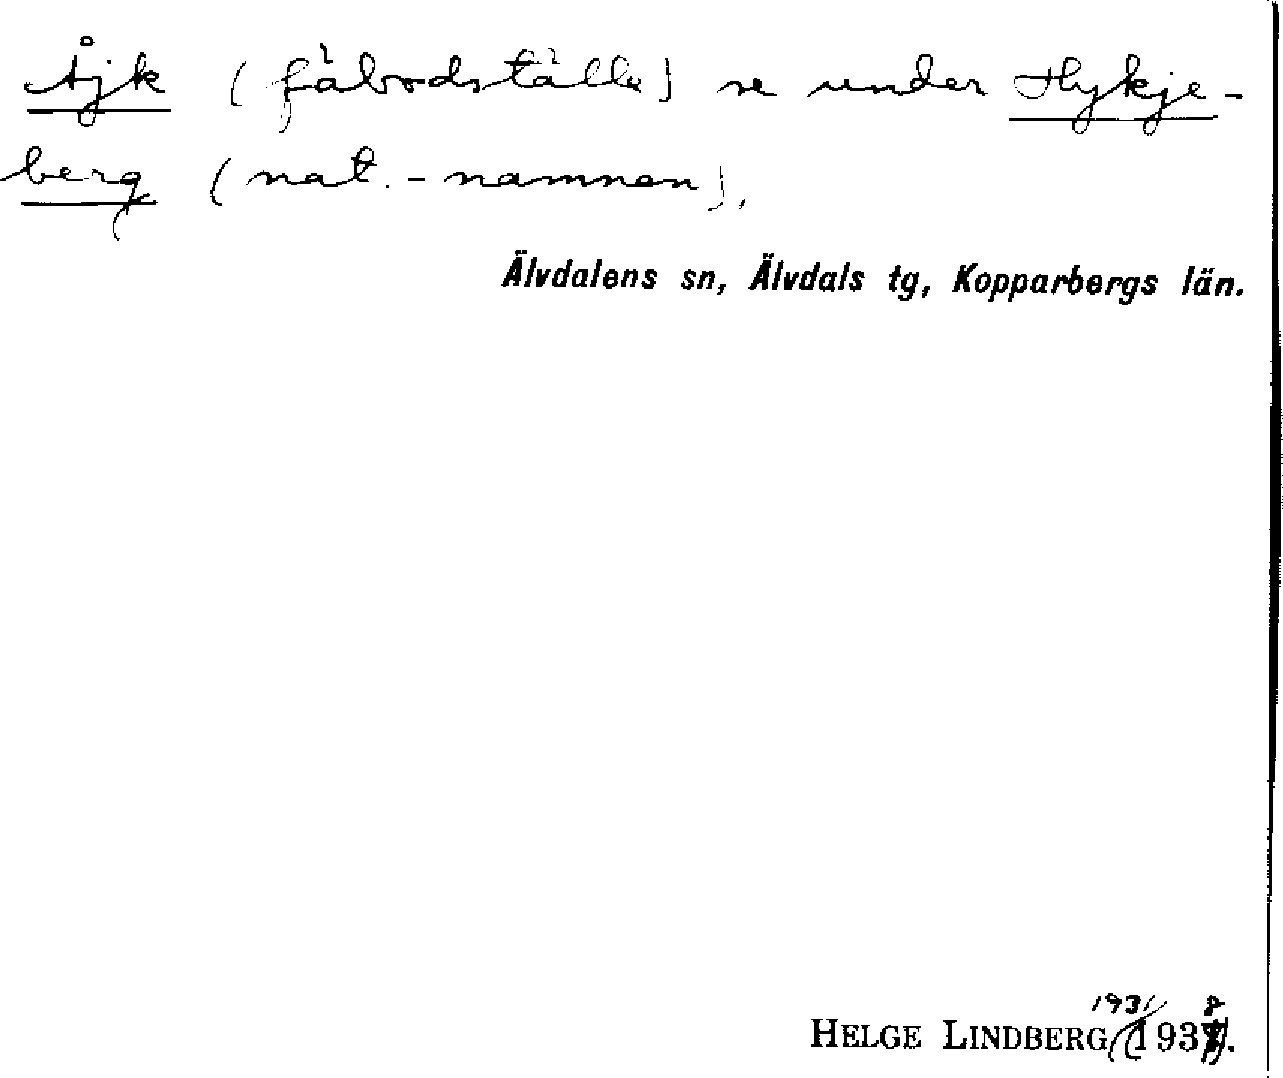 Åjk (fäbodställe) se under Hykje-
berg (nat.-namnen).
Älvdalens sn, Älvdals tg, Kopparbergs län.
HELGE LINDBERG 1931/(1938).